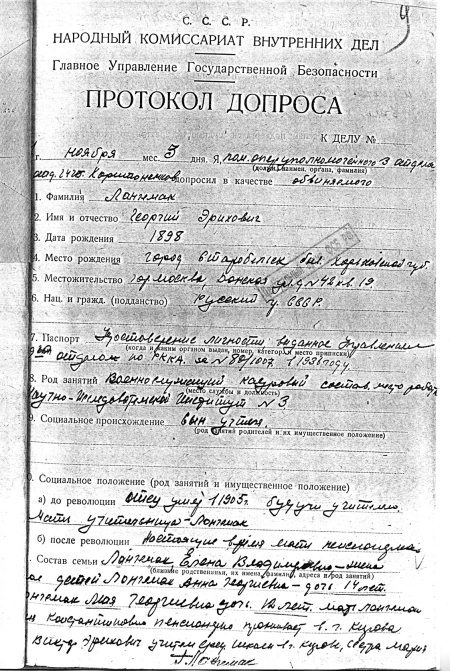 С. С. С. Р.
НАРОДНЫЙ КОМИССАРИАТ ВНУТРЕННИХ ДЕЛ
Главное Управление Государственной Безопасности
ПРОТОКОЛ ДОПРОСА
К ДЕЛУ №
г. ноября мес. 5 дня. Я, пом. оперуполномоченного 3 отдела
(должн., наимен. органа, фамилия)
допросил в качестве обвиняемого
1. Фамилия Лангемак
2. Имя и отчество Георгий Эрихович
3. Дата рождения 1898
4. Место рождения город Старобельск быв. Харьковской губ.
5. Местожительство гор Москва, Донская ул. д № 42 кв. 19.
6. Нац. и гражд. (подданство) Русский гр. СССР.
7. Паспорт Удостоверение личности выданное Управлением
(когда и каким органом выдан, номер, категор. и место приписки)
отделом по РККА. за № 80/1007. 1936 году.
8. Род занятий Военнослужащий кадровый состав. место работы
(место службы и должность)
Научно-Исследовательский Институт № 3.
9. Социальное происхождение сын учителя.
(род занятий родителей и их имущественное положение)
0. Социальное положение (род занятий и имущественное положение)
а) до революции отец умер 1905г. будучи учителем.
Мать учительница - Лангемак
б) после революции настоящее время мать пенсионерка
. Состав семьи Лангемак, Елена Владимировна - жена
(ближние родственники, их имена, фамилии, адреса и род занятий)
детей Лангемак Анна Георгиевна - дочь 14 лет.
Лангемак Майя Георгиевна дочь. 12 лет. мать Лангемак
Константиновна пенсионерка проживает в г.
учитель сред школы в г. сестра Мария
Г. Лангемак